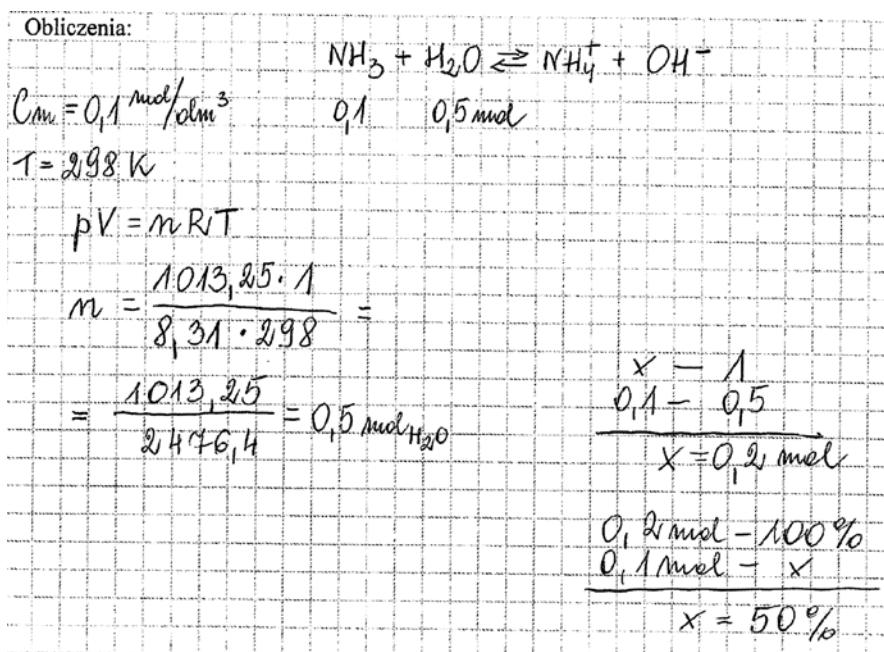 Obliczenia:
NH₃ + H₂O ⇄ NH₄⁺ + OH⁻
Cm = 0,1 mol/dm³
0,1 0,5 mol
T = 298 K
pV = nRT
n = 1013,25 · 1 / 8,31 · 298 =
= 1013,25 / 2476,4 = 0,5 mol H₂O
x — 1
0,1 — 0,5
x = 0,2 mol
0,2 mol — 100%
0,1 mol — x
x = 50%